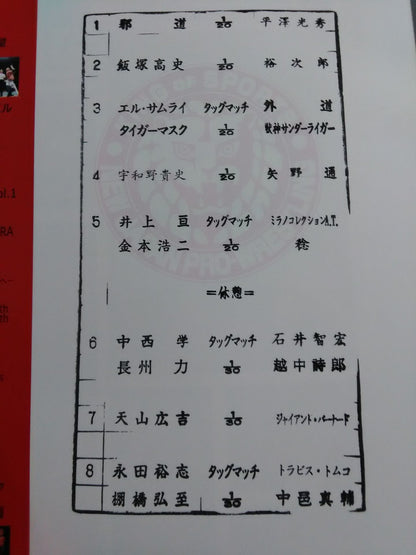 1 邪道 1/20 平澤光秀
2 飯塚高史 1/20 裕次郎
3 エル・サムライ タッグマッチ 外道
タイガーマスク 1/20 獣神サンダーライガー
4 宇和野貴史 1/20 矢野通
5 井上亘 タッグマッチ ミラノコレクションA.T.
金本浩二 1/20 稔
=休憩=
6 中西学 タッグマッチ 石井智宏
長州力 1/30 越中詩郎
7 天山広吉 1/30 ジャイアント・バーナード
8 永田裕志 タッグマッチ トラビス・トムコ
棚橋弘至 1/30 中邑真輔
ル
ol.1
RA